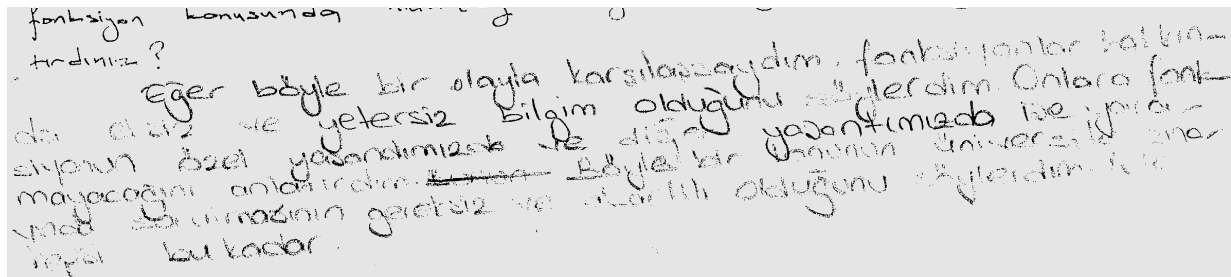 fonksiyon konusunda
tırdınız?
Eğer böyle bir olayla karşılaşsaydım. fonksiyonlar hakkın-
da eksiz ve yetersiz bilgim olduğunu söylerdim. Onlara fonk-
siyonun özel yaşandımızda ve diğer yaşantımızda işe yara-
mayacağını anlatırdım. Böyle bir konunun üniversite sına-
vında sorulmasının gereksiz ve olduğunu söylerdim. İşte
hepsi bu kadar.